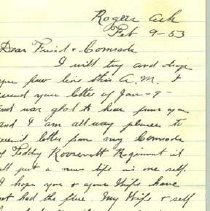 Rogers Ark
Feb 9-53
Dear Friend & Comrade
I will try and drop
you few lins this A.M. I
recived your letter of Jan-9-
and was glad to hear from you
and I am all way pleases to
recived letter from my Comrade
of Teddy Roosevelt Regiment it
put a new life in one self.
I hope you & your Wife have
not had the flue. My Wife & self